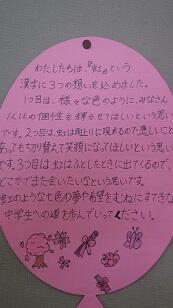 わたしたちは、『虹』という
漢字に3つの想いを込めました。
1つ目は、様々な色のように、みなさん
1人1人の個性を輝かせてほしいという思い
です。2つ目は、虹は雨上りに現れるので、悲しいこと
あっても切り替えて笑顔になってほしいという思い
です。3つ目は、虹はふとしたときに出てくるので、
どこかでまた会いたいなという思いです。
虹のような七色の夢や希望をむねにすてきな
中学生への道を歩んでいってください。